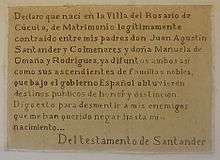 Declaro que nací en la Villa del Rosario de
Cúcuta, de Matrimonio legítimamente
contraído entre mis padres don Juan Agustín
Santander y Colmenares y doña Manuela de
Omaña y Rodríguez, ya difuntos ambos así
como sus ascendientes de familias nobles,
que bajo el gobierno Español obtuvieron
destinos públicos de honor y distinción.
Digo esto para desmentir a mis enemigos
que me han querido negar hasta mi
nacimiento...
Del testamento de Santander